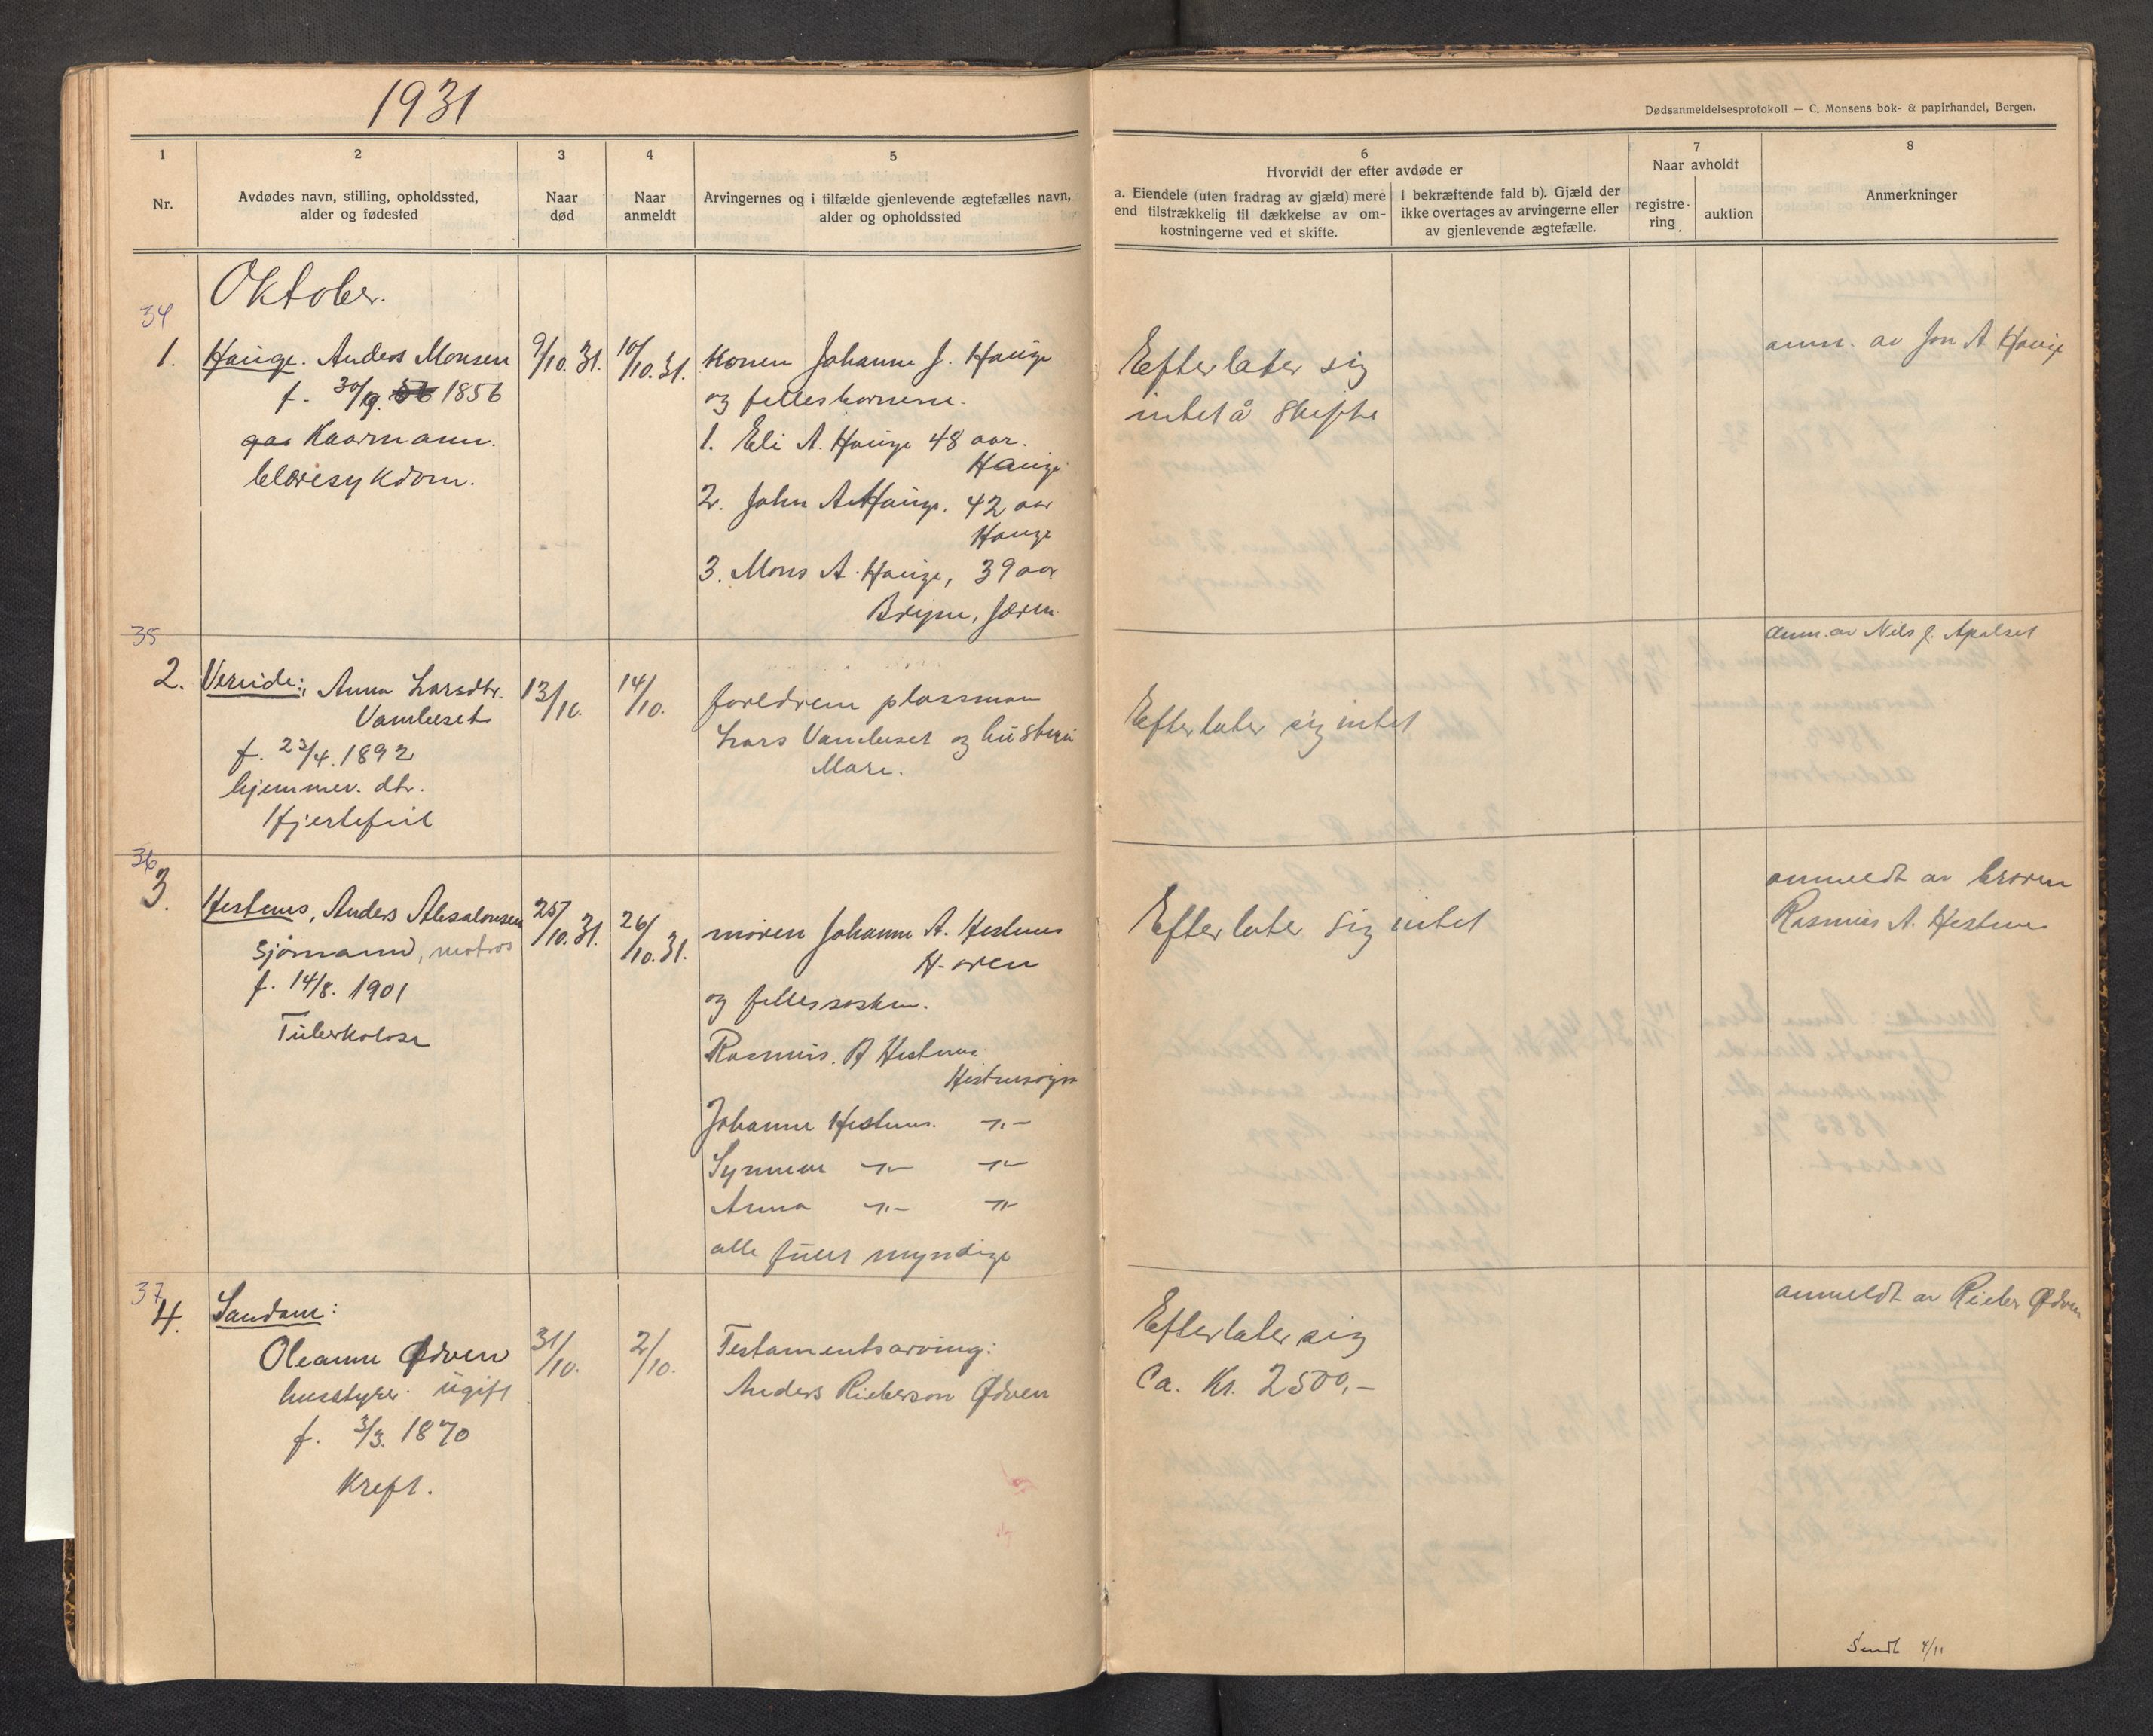 1931
Dødsanmeldelsesprotokoll — C. Monsens bok- & papirhandel, Bergen.
1
2
3
4
5
6
7
8
Nr.
Avdødes navn, stilling, opholdssted,
alder og fødested
Naar
død
Naar
anmeldt
Arvingernes og i tilfælde gjenlevende ægtefælles navn,
alder og opholdssted
Hvorvidt der efter avdøde er
a. Eiendele (uten fradrag av gjæld) mere
end tilstrækkelig til dækkelse av om-
kostningerne ved et skifte.
I bekræftende fald b). Gjæld der
ikke overtages av arvingerne eller
av gjenlevende ægtefælle.
Naar avholdt
registre-
ring
auktion
Anmerkninger
Oktober.
34
1.
Hauge. Anders Monsen
f. 30/9. 1856
Kaarmann.
blæresykdom.
9/10. 31.
10/10. 31.
Konen Johanne J. Hauge
og fellesbornene.
1. Eli A. Hauge 48 aar.
Hauge
2. John A Hauge. 42 aar
Hauge
3. Mons A. Hauge, 39 aar
Bryne, Jæren.
Efterlater sig
intet å skifte
anm. av Jon A Hauge
35
2.
Vereide:, Anna Larsdtr.
f. 23/4. 1892
hjemmev. dtr.
Hjertefeil
13/10.
14/10.
foreldrene plassman
Lars og hustru
Mari.
Efterlater sig intet
anm. av Nils J. Apalset
36
3.
Hestnes, Anders Absalonsen
Sjømann, matros
f. 14/8. 1901
Tuberkolose
25/10. 31.
26/10. 31.
moren Johanne A. Hestnes
H-øren
og fellessøsken.
Rasmus. A Hestnes
Hestnesøyra
Johanne Hestnes. -"-
Synneve -"- -"-
Anna -"- -"-
alle fullt myndige
Efterlater sig intet
anmeldt av broren
Rasmus A. Hestnes
37
4.
Sandane:
Oleanne Ødven
husstyrer. ugift
f. 3/3. 1870
Kreft.
31/10.
2/10.
Testamentsarving:
Anders Rieberson Ødven
Efterlater sig
Ca. Kr. 2500,-
anmeldt av Rieber Ødven
Sendt 4/11